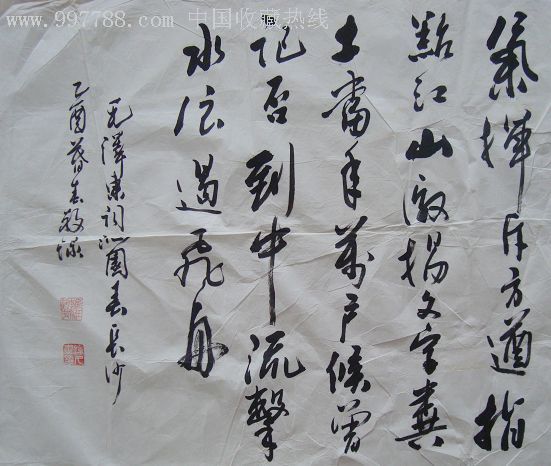 www.997788.com 中国收藏热线
氣揮斥方遒指
點江山激揚文字糞
土當年萬户候曾
记否到中流擊
水浪遏飛舟
毛澤東詞沁園春長沙
乙酉暮春敬録